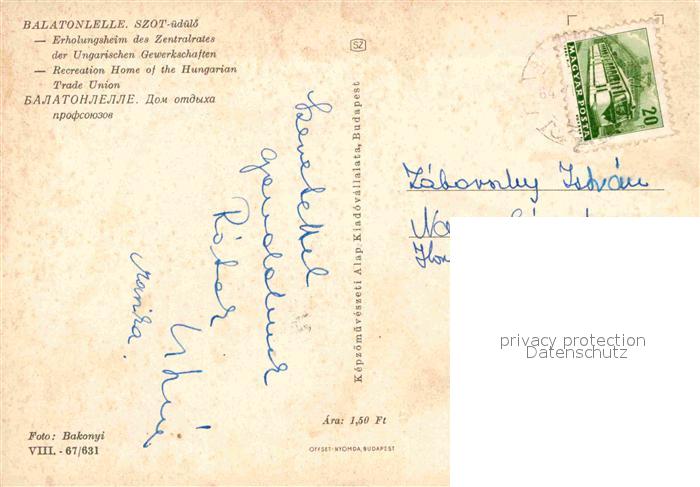 BALATONLELLE. SZOT-üdülő
— Erholungsheim des Zentralrates
der Ungarischen Gewerkschaften
— Recreation Home of the Hungarian
Trade Union
БАЛАТОНЛЕЛЛЕ. Дом отдыха
профсоюзов
Szeretettel
gondolunk
Marika.
Foto: Bakonyi
VIII. - 67/631
SZ
Képzőművészeti Alap Kiadóvállalata, Budapest
Ára: 1,50 Ft
OFFSET-NYOMDA, BUDAPEST
MAGYAR POSTA
20
Záborszky István
privacy protection
Datenschutz